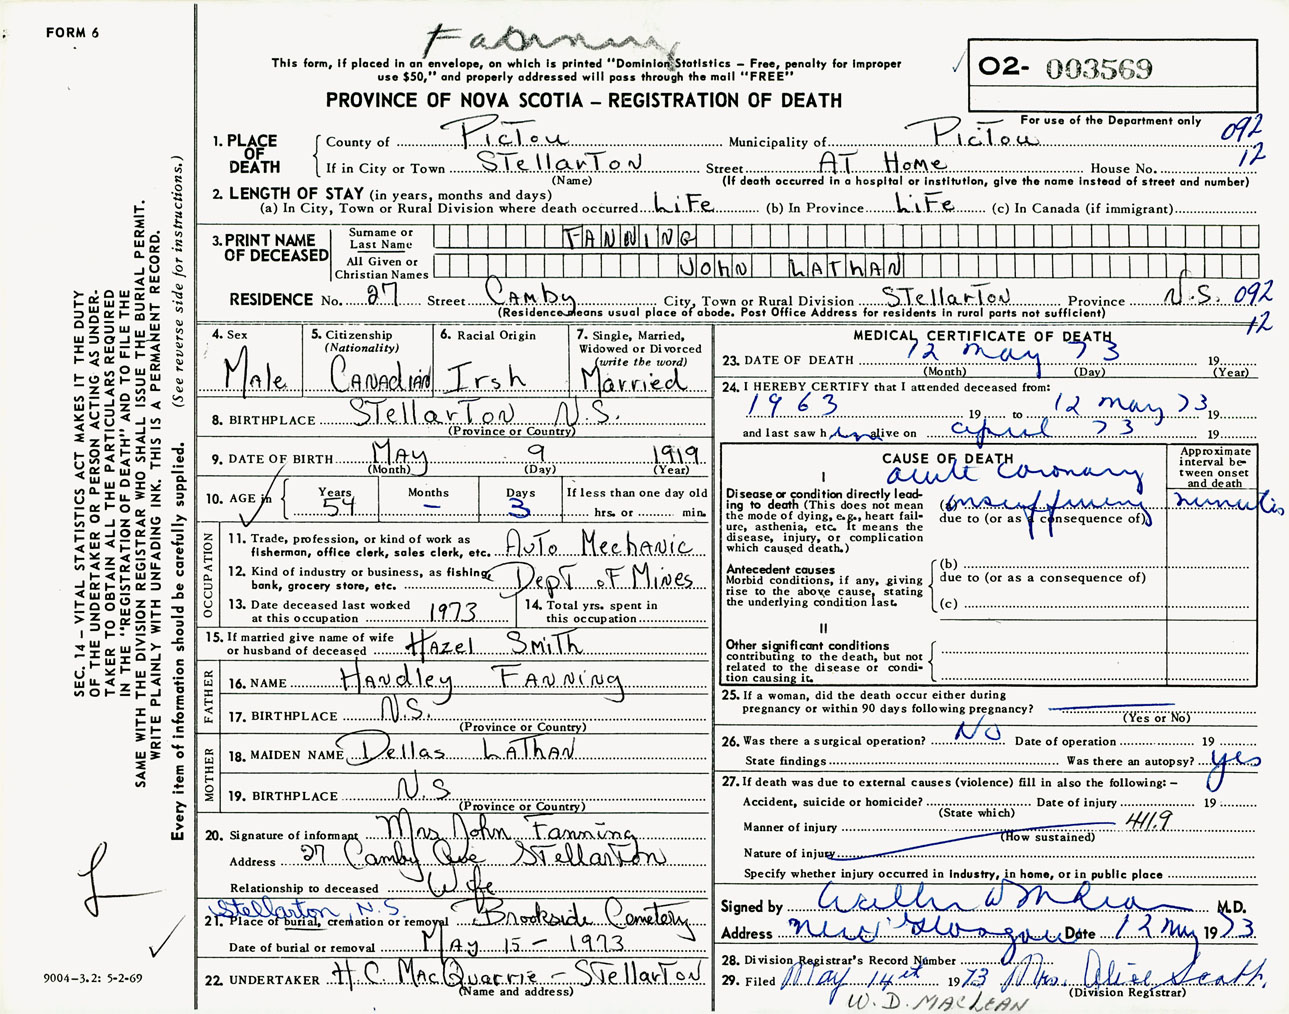 FORM 6
Fanning
This form, if placed in an envelope, on which is printed "Dominion Statistics – Free, penalty for improper
use $50," and properly addressed will pass through the mail "FREE"
PROVINCE OF NOVA SCOTIA – REGISTRATION OF DEATH
02- 003569
For use of the Department only
092
12
1. PLACE OF DEATH County of Pictou Municipality of Pictou
If in City or Town STellarTon Street AT Home House No.
(Name) (If death occurred in a hospital or institution, give the name instead of street and number)
2. LENGTH OF STAY (in years, months and days)
(a) In City, Town or Rural Division where death occurred LiFe (b) In Province LiFe (c) In Canada (if immigrant)
3. PRINT NAME OF DECEASED
Surname or Last Name FANNING
All Given or Christian Names JOHN LATHAN
RESIDENCE No. 27 Street Camby City, Town or Rural Division STellarTon Province N.S. 092
12
(Residence means usual place of abode. Post Office Address for residents in rural parts not sufficient)
4. Sex Male
5. Citizenship (Nationality) CANADIAN
6. Racial Origin Irsh
7. Single, Married, Widowed or Divorced (write the word) Married
8. BIRTHPLACE STellarTon N.S.
(Province or Country)
9. DATE OF BIRTH MAY 9 1919
(Month) (Day) (Year)
10. AGE in Years 54 Months – Days 3 If less than one day old hrs. or min.
OCCUPATION
11. Trade, profession, or kind of work as fisherman, office clerk, sales clerk, etc. Auto Mechanic
12. Kind of industry or business, as fishing, bank, grocery store, etc. Dept of Mines
13. Date deceased last worked at this occupation 1973
14. Total yrs. spent in this occupation
15. If married give name of wife or husband of deceased Hazel Smith
FATHER
16. NAME Handley FANNING
17. BIRTHPLACE N.S.
(Province or Country)
MOTHER
18. MAIDEN NAME Dellas LATHAN
19. BIRTHPLACE N.S
(Province or Country)
20. Signature of informant Mrs John Fanning
Address 27 Camby Ave STellarTon
Relationship to deceased Wife
Stellarton, N.S.
21. Place of burial, cremation or removal Brookside Cemetery
Date of burial or removal May 15 – 1973
22. UNDERTAKER H.C. MacQuarrie – STellarTon
(Name and address)
MEDICAL CERTIFICATE OF DEATH
23. DATE OF DEATH 12 May 73 19
(Month) (Day) (Year)
24. I HEREBY CERTIFY that I attended deceased from:
1963 19 to 12 May 73 19
and last saw him alive on april 73 19
CAUSE OF DEATH
Approximate interval between onset and death
I
acute coronary
Disease or condition directly leading to death (This does not mean the mode of dying, e.g., heart failure, asthenia, etc. It means the disease, injury, or complication which caused death.)
(a) insufficiency minutes
due to (or as a consequence of)
Antecedent causes
Morbid conditions, if any, giving rise to the above cause, stating the underlying condition last.
(b)
due to (or as a consequence of)
(c)
II
Other significant conditions
contributing to the death, but not related to the disease or condition causing it.
25. If a woman, did the death occur either during
pregnancy or within 90 days following pregnancy?
(Yes or No)
26. Was there a surgical operation? No Date of operation 19
State findings Was there an autopsy? yes
27. If death was due to external causes (violence) fill in also the following: –
Accident, suicide or homicide? Date of injury 19
(State which)
Manner of injury 411.9
(How sustained)
Nature of injury
Specify whether injury occurred in industry, in home, or in public place
Signed by M.D.
Address New Glasgow Date 12 May 1973
28. Division Registrar's Record Number
29. Filed May 14th 1973 Mrs. Alice Scott
(Division Registrar)
W.D. MACLEAN
SEC. 14 – VITAL STATISTICS ACT MAKES IT THE DUTY
OF THE UNDERTAKER OR PERSON ACTING AS UNDER-
TAKER TO OBTAIN ALL THE PARTICULARS REQUIRED
IN THE "REGISTRATION OF DEATH" AND TO FILE THE
SAME WITH THE DIVISION REGISTRAR WHO SHALL ISSUE THE BURIAL PERMIT.
WRITE PLAINLY WITH UNFADING INK. THIS IS A PERMANENT RECORD.
Every item of information should be carefully supplied. (See reverse side for instructions.)
9004-3.2: 5-2-69